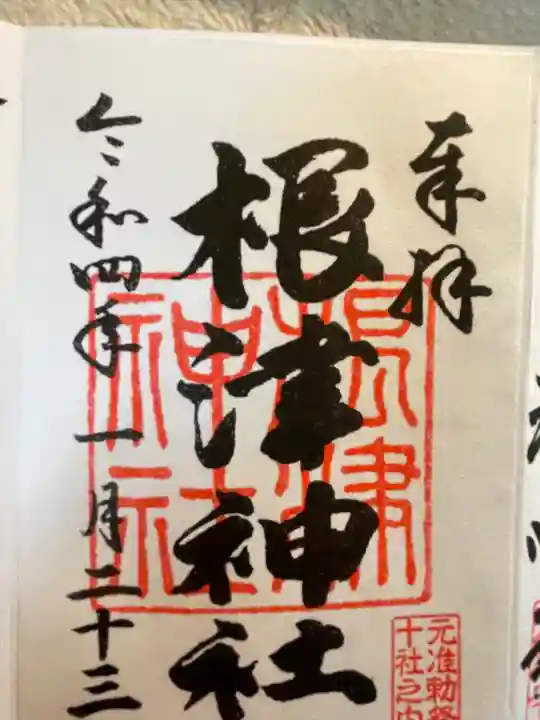 奉拝
根津神社
令和四年一月二十三
根津
神社
元准勅祭
十社之内